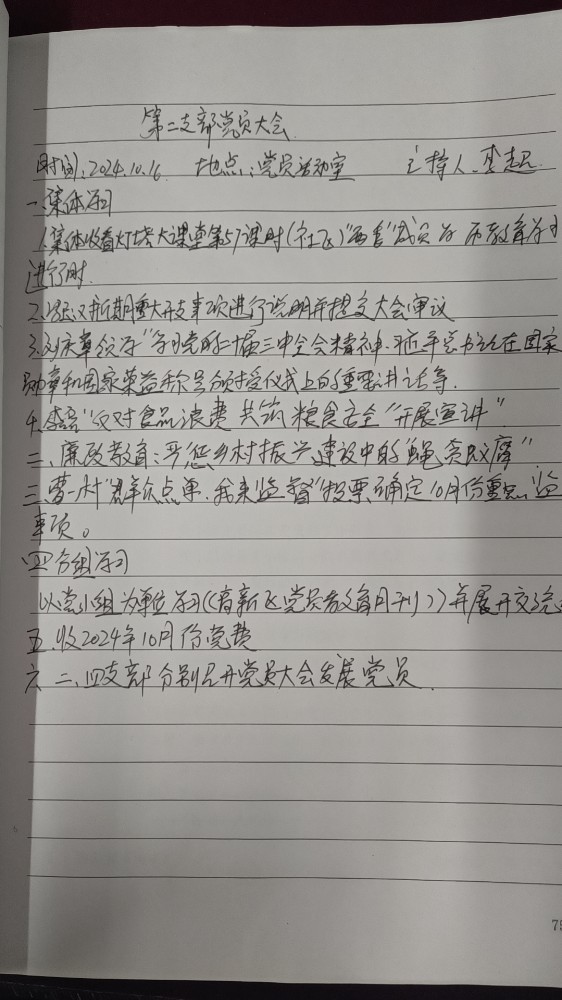 第二支部党员大会
时间:2024.10.16 地点:党员活动室 主持人:李超
一、集体学习
1.集体收看灯塔大课堂第57课时(社区)"两委"成员
进行时.
2.对近期重大开支事项进行说明并提交大会审议
3.领学"学习党的二十届三中全会精神.习近平总书记在国家
勋章和国家荣誉称号颁授仪式上的重要讲话等.
4. "反对食品浪费 共筑粮食安全"开展宣讲"
二、廉政教育:严惩乡村振兴建设中的"蝇贪蚁腐"
三、"群众点单.我来监督"投票确定10月份重点监
事项。
四分组学习
以党小组为单位学习《高新区党员教育月刊》并展开交流
五.收2024年10月份党费
六 二、四支部分别召开党员大会发展党员.
79